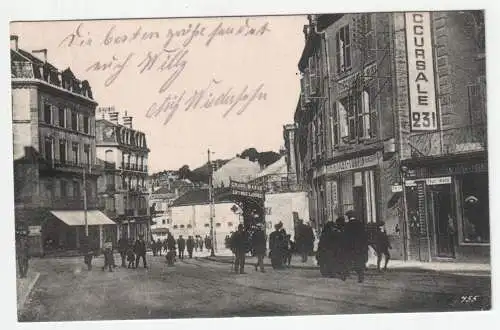 Die besten grüße sendet
euch Willy
Auf Wiedersehn
CCURSALE
231
755